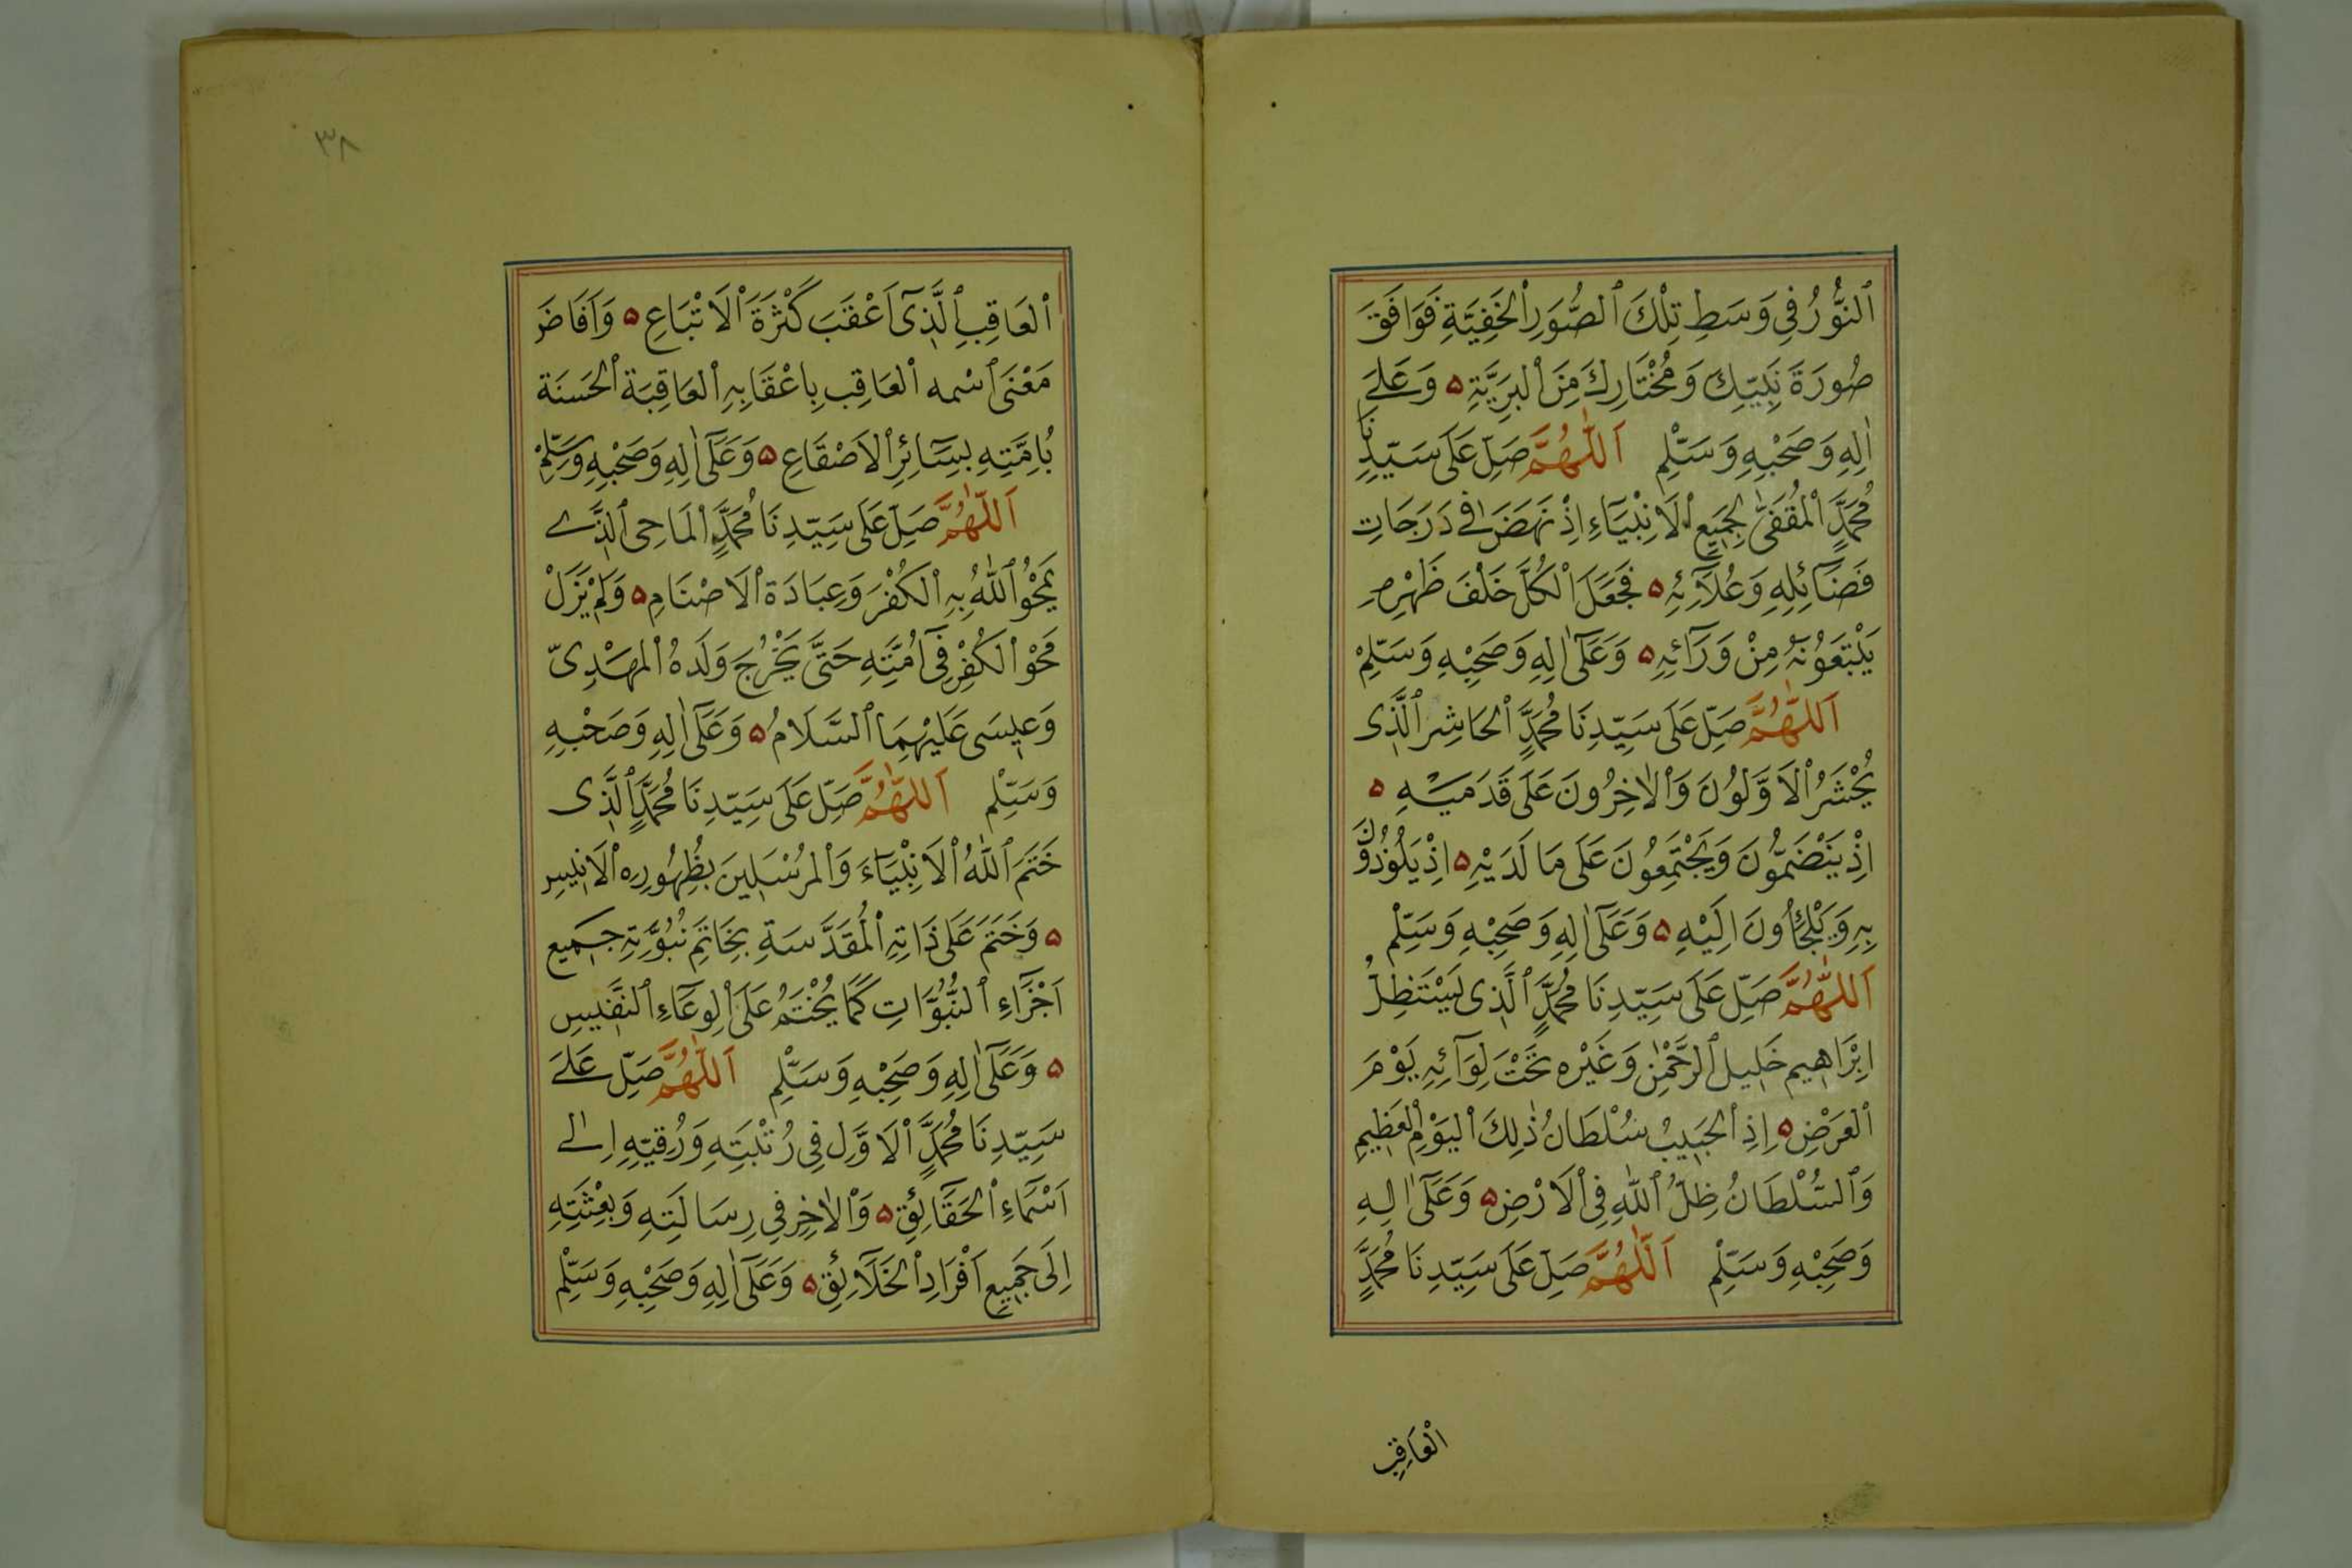 ٱلنُّورُ فِى وَسَطِ تِلْكَ ٱلصُّوَرِ ٱلْخَفِيَّةِ فَوَافَقَ
صُورَةَ نَبِيِّكَ وَمُخْتَارِكَ مِنَ ٱلْبَرِيَّةِ ۵ وَعَلَى
اٰلِهِ وَصَحْبِهِ وَسَلِّمْ اَللّٰهُمَّ صَلِّ عَلَى سَيِّدِنَا
مُحَمَّدٍ ٱلْمُقَفّٰى لِجَمِيعِ ٱلْاَنْبِيَاءِ اِذْ نَهَضَ فِى دَرَجَاتِ
فَضَآئِلِهِ وَعُلَآئِهِ ۵ فَجَعَلَ ٱلْكُلَّ خَلْفَ ظَهْرِهِ
يَتْبَعُوْنَهُ مِنْ وَرَآئِهِ ۵ وَعَلَىٓ اٰلِهِ وَصَحْبِهِ وَسَلِّمْ
اَللّٰهُمَّ صَلِّ عَلَى سَيِّدِنَا مُحَمَّدٍ ٱلْحَاشِرِ ٱلَّذِى
يُحْشَرُ ٱلْاَوَّلُوْنَ وَٱلْاٰخِرُونَ عَلَى قَدَمَيْهِ ۵
اِذْ يَنْضَمُّونَ وَيَجْتَمِعُوْنَ عَلَى مَا لَدَيْهِ ۵ اِذْ يَلُوْذُوْنَ
بِهِ وَيَلْجَأُونَ اِلَيْهِ ۵ وَعَلَىٓ اٰلِهِ وَصَحْبِهِ وَسَلِّمْ
اَللّٰهُمَّ صَلِّ عَلَى سَيِّدِنَا مُحَمَّدٍ ٱلَّذِى يَسْتَظِلُّ
اِبْرَاهِيم خَلِيل ٱلرَّحْمٰنِ وَغَيْرِه تَحْتَ لِوَآئِهِ يَوْمَ
ٱلْعَرْضِ ۵ اِذِ ٱلْحَبِيبُ سُلْطَانُ ذٰلِكَ ٱلْيَوْمِ ٱلْعَظِيمِ
وَٱلسُّلْطَانُ ظِلُّ ٱللّٰهِ فِى ٱلْاَرْضِ ۵ وَعَلَىٓ اٰلِهِ
وَصَحْبِهِ وَسَلِّمْ اَللّٰهُمَّ صَلِّ عَلَى سَيِّدِنَا مُحَمَّدٍ
ٱلْعَاقِبِ
٣٨
ٱلْعَاقِبِ ٱلَّذِىٓ اَعْقَبَ كَثْرَةَ ٱلْاَتْبَاعِ ۵ وَاَفَاضَ
مَعْنَى ٱسْمِه ٱلْعَاقِب بِاِعْقَابِهِ ٱلْعَاقِبَة ٱلْحَسَنَة
بُاِمَّتِهِ بِسَآئِرِ ٱلْاَصْقَاعِ ۵ وَعَلَىٓ اٰلِهِ وَصَحْبِهِ وَسَلِّمْ
اَللّٰهُمَّ صَلِّ عَلَى سَيِّدِنَا مُحَمَّدٍ ٱلْمَاحِى ٱلَّذِى
يَمْحُوْ ٱللّٰهُ بِهِ ٱلْكُفْرَ وَعِبَادَةَ ٱلْاَصْنَامِ ۵ وَلَمْ يَزَلْ
مَحْوُ ٱلْكُفْرِ فِىٓ اُمَّتِهِ حَتَّى يَخْرُجَ وَلَدهُ ٱلْمَهْدِىّ
وَعِيسَى عَلَيْهِمَا ٱلسَّلَامُ ۵ وَعَلَىٓ اٰلِهِ وَصَحْبِهِ
وَسَلِّمْ اَللّٰهُمَّ صَلِّ عَلَى سَيِّدِنَا مُحَمَّدٍ ٱلَّذِى
خَتَمَ ٱللّٰهُ ٱلْاَنْبِيَآءَ وَٱلْمُرْسَلِينَ بِظُهُورِهِ ٱلْاَنِيسِ
۵ وَخَتَمَ عَلَى ذَاتِهِ ٱلْمُقَدَّسَةِ بِخَاتِمِ نُبُوَّتِهِ جَمِيعِ
اَجْزَآءِ ٱلنُّبُوَّاتِ كَمَا يُخْتَمُ عَلَى ٱلْوِعَآءِ ٱلنَّفِيسِ
۵ وَعَلَىٓ اٰلِهِ وَصَحْبِهِ وَسَلِّمْ اَللّٰهُمَّ صَلِّ عَلَى
سَيِّدِنَا مُحَمَّدٍ ٱلْاَوَّلِ فِى رُتْبَتِهِ وَرُقِيِّهِ اِلَى
اَسْمَآءِ ٱلْحَقَآئِقِ ۵ وَٱلْاٰخِرِ فِى رِسَالَتِهِ وَبِعْثَتِهِ
اِلَى جَمِيعِ اَفْرَادِ ٱلْخَلَآئِقِ ۵ وَعَلَىٓ اٰلِهِ وَصَحْبِهِ وَسَلِّمْ